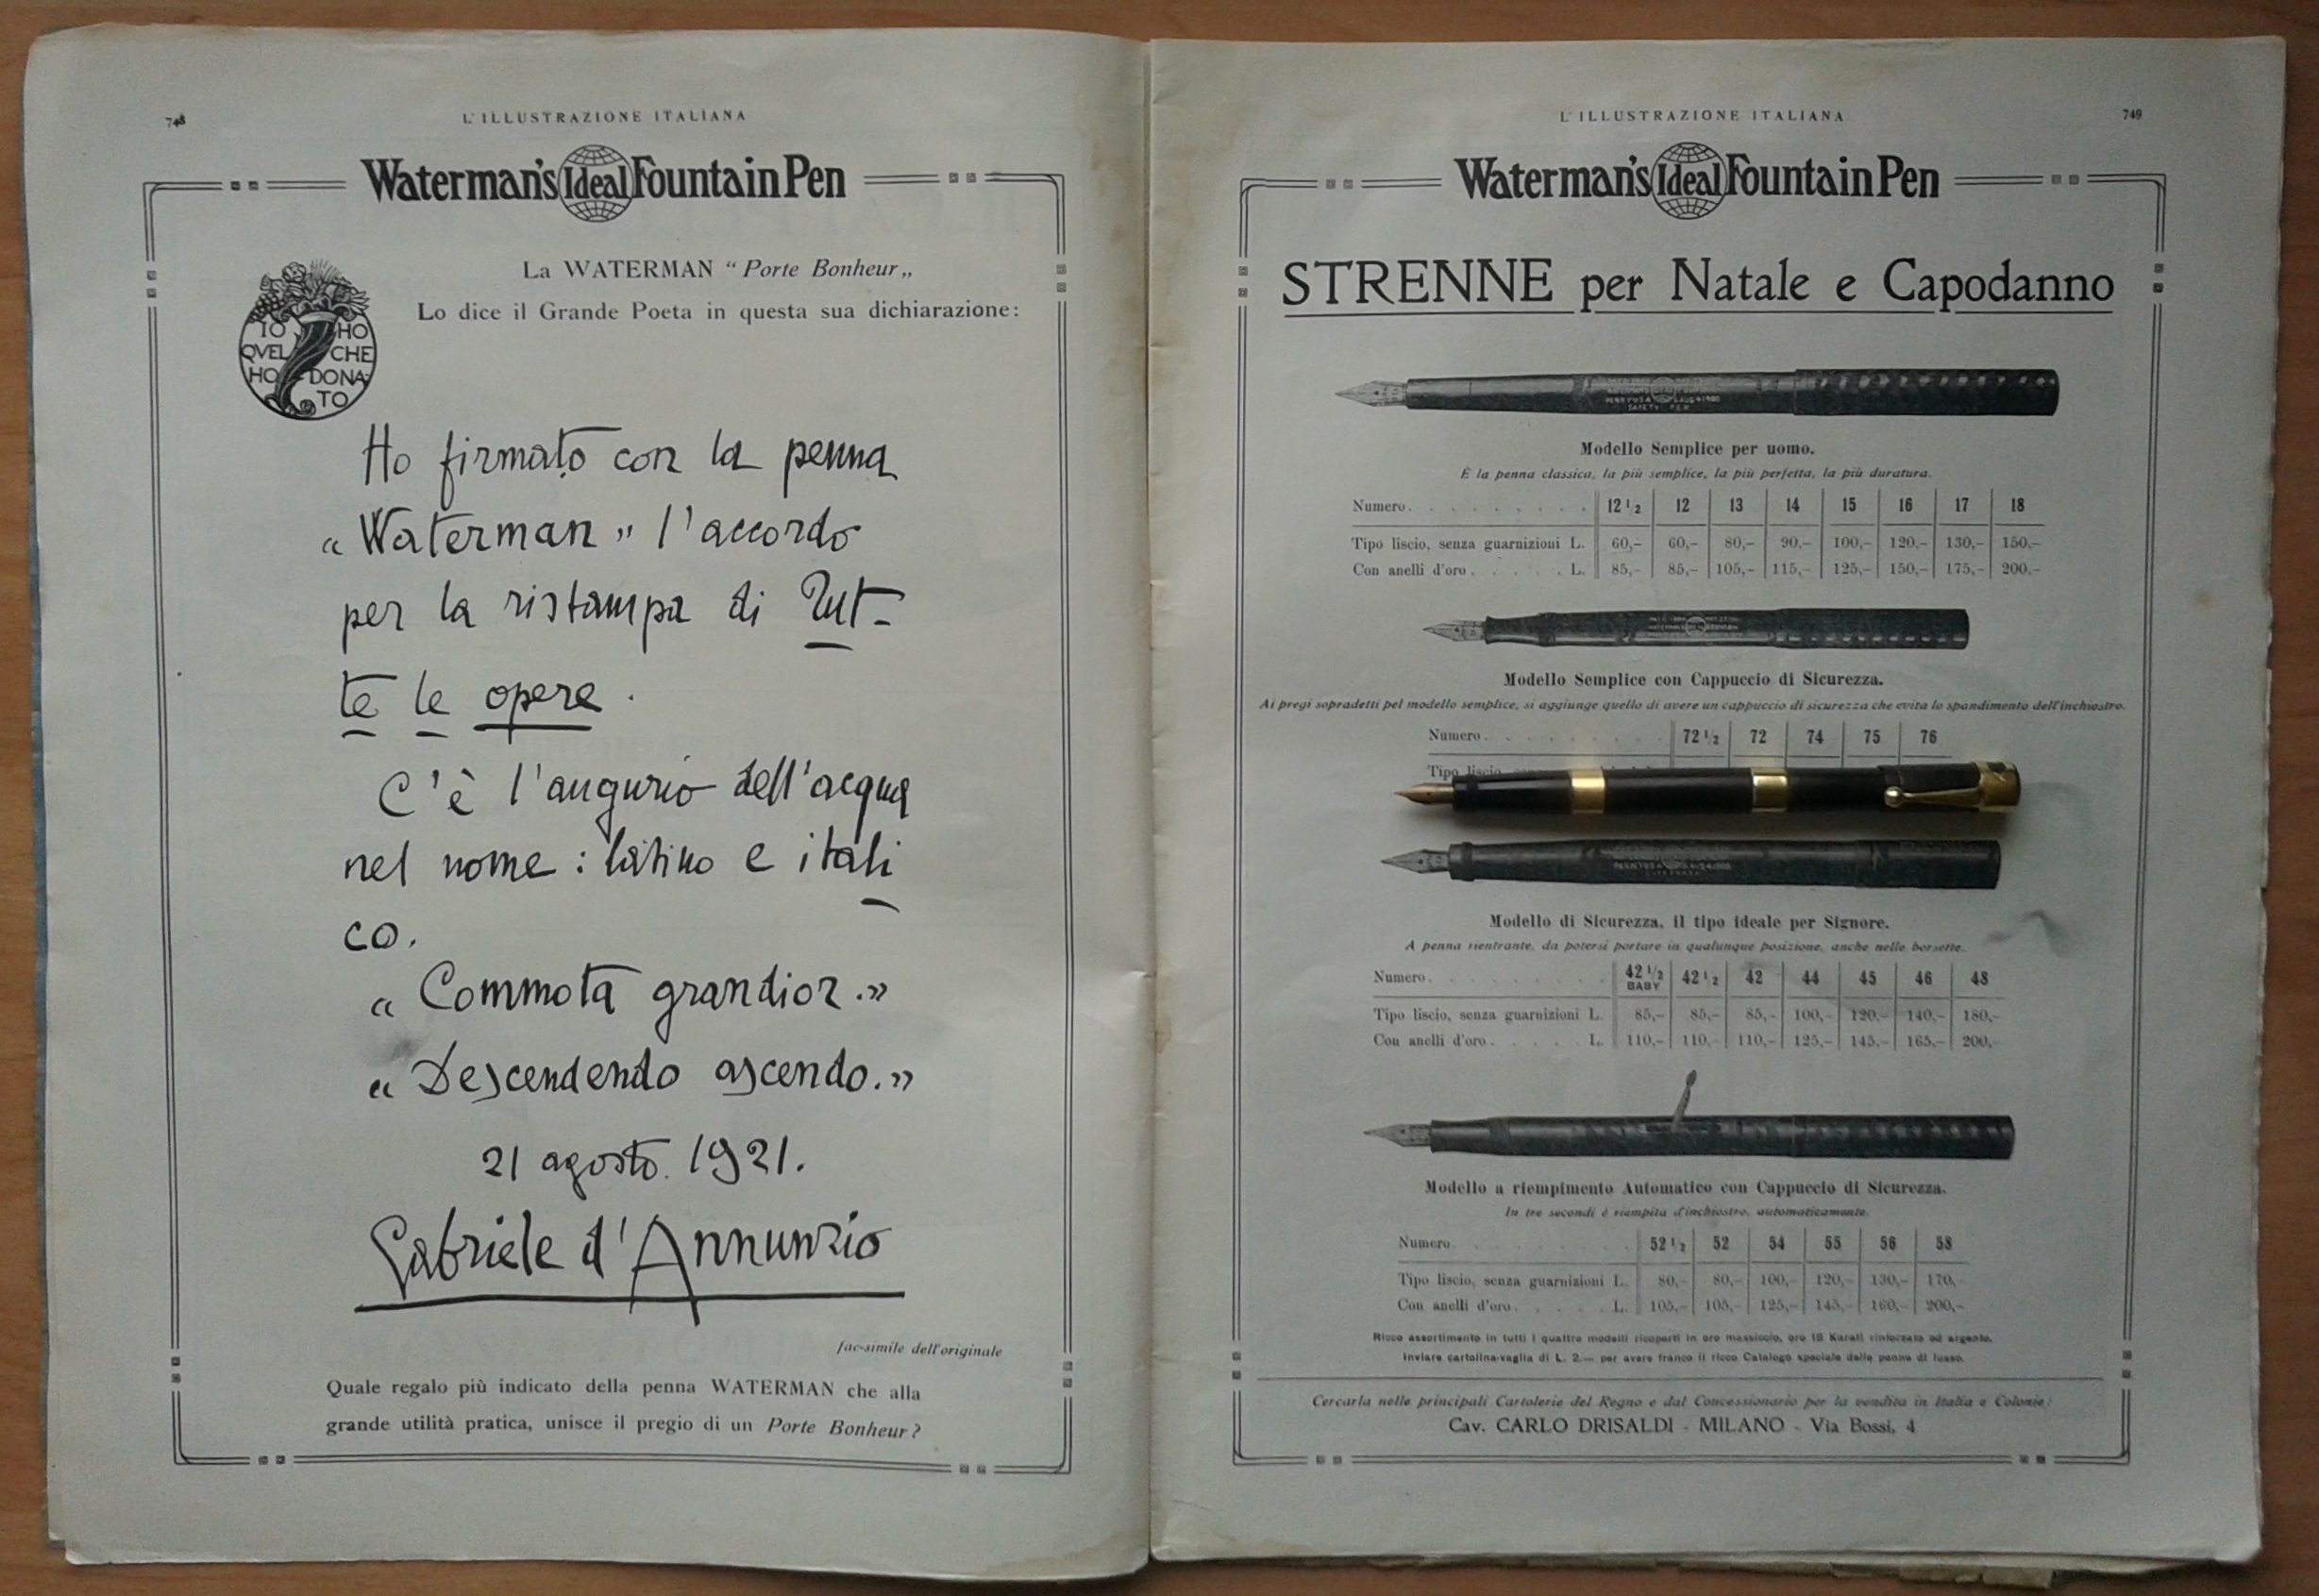 748
L'ILLUSTRAZIONE ITALIANA
Waterman's Ideal Fountain Pen
La WATERMAN "Porte Bonheur„
Lo dice il Grande Poeta in questa sua dichiarazione:
IO HO
QVEL CHE
HO DONA-
TO
Ho firmato con la penna
« Waterman » l'accordo
per la ristampa di Tut-
te le opere.
C'è l'augurio dell'acqua
nel nome: latino e itali
co.
« Commota grandior.»
« Descendendo ascendo.»
21 agosto. 1921.
Gabriele d'Annunzio
fac-simile dell'originale
Quale regalo più indicato della penna WATERMAN che alla
grande utilità pratica, unisce il pregio di un Porte Bonheur?
L'ILLUSTRAZIONE ITALIANA
749
Waterman's Ideal Fountain Pen
STRENNE per Natale e Capodanno
Modello Semplice per uomo.
È la penna classica, la più semplice, la più perfetta, la più duratura.
Numero . . . . . . . . . . 12 1/2 12 13 14 15 16 17 18
Tipo liscio, senza guarnizioni L. 60,- 60,- 80,- 90,- 100,- 120,- 130,- 150,-
Con anelli d'oro . . . . . L. 85,- 85,- 105,- 115,- 125,- 150,- 175,- 200,-
Modello Semplice con Cappuccio di Sicurezza.
Ai pregi sopradetti pel modello semplice, si aggiunge quello di avere un cappuccio di sicurezza che evita lo spandimento dell'inchiostro.
Numero . . . . . . . . . . 72 1/2 72 74 75 76
Tipo liscio
Modello di Sicurezza, il tipo ideale per Signore.
A penna rientrante, da potersi portare in qualunque posizione, anche nelle borsette.
Numero . . . . . . . . . . 42 1/2 BABY 42 1/2 42 44 45 46 48
Tipo liscio, senza guarnizioni L. 85,- 85,- 85,- 100,- 120,- 140,- 180,-
Con anelli d'oro . . . . . L. 110,- 110,- 110,- 125,- 145,- 165,- 200,-
Modello a riempimento Automatico con Cappuccio di Sicurezza.
In tre secondi è riempita d'inchiostro, automaticamente.
Numero . . . . . . . . . . 52 1/2 52 54 55 56 58
Tipo liscio, senza guarnizioni L. 80,- 80,- 100,- 120,- 130,- 170,-
Con anelli d'oro . . . . . L. 105,- 105,- 125,- 145,- 160,- 200,-
Ricco assortimento in tutti i quattro modelli ricoperti in oro massiccio, oro 18 Karati rinforzato ed argento.
Inviare cartolina-vaglia di L. 2.— per avere franco il ricco Catalogo speciale delle penne di lusso.
Cercarla nelle principali Cartolerie del Regno e dal Concessionario per la vendita in Italia e Colonie:
Cav. CARLO DRISALDI - MILANO - Via Bossi, 4